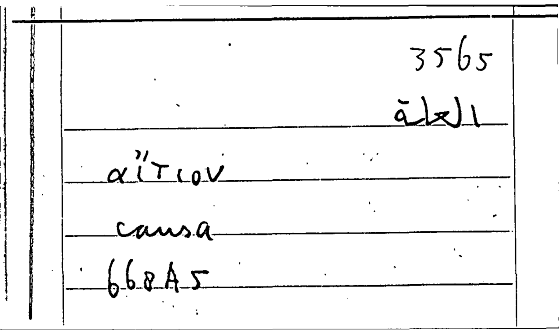 3565
αἴτιον
causa
668A5